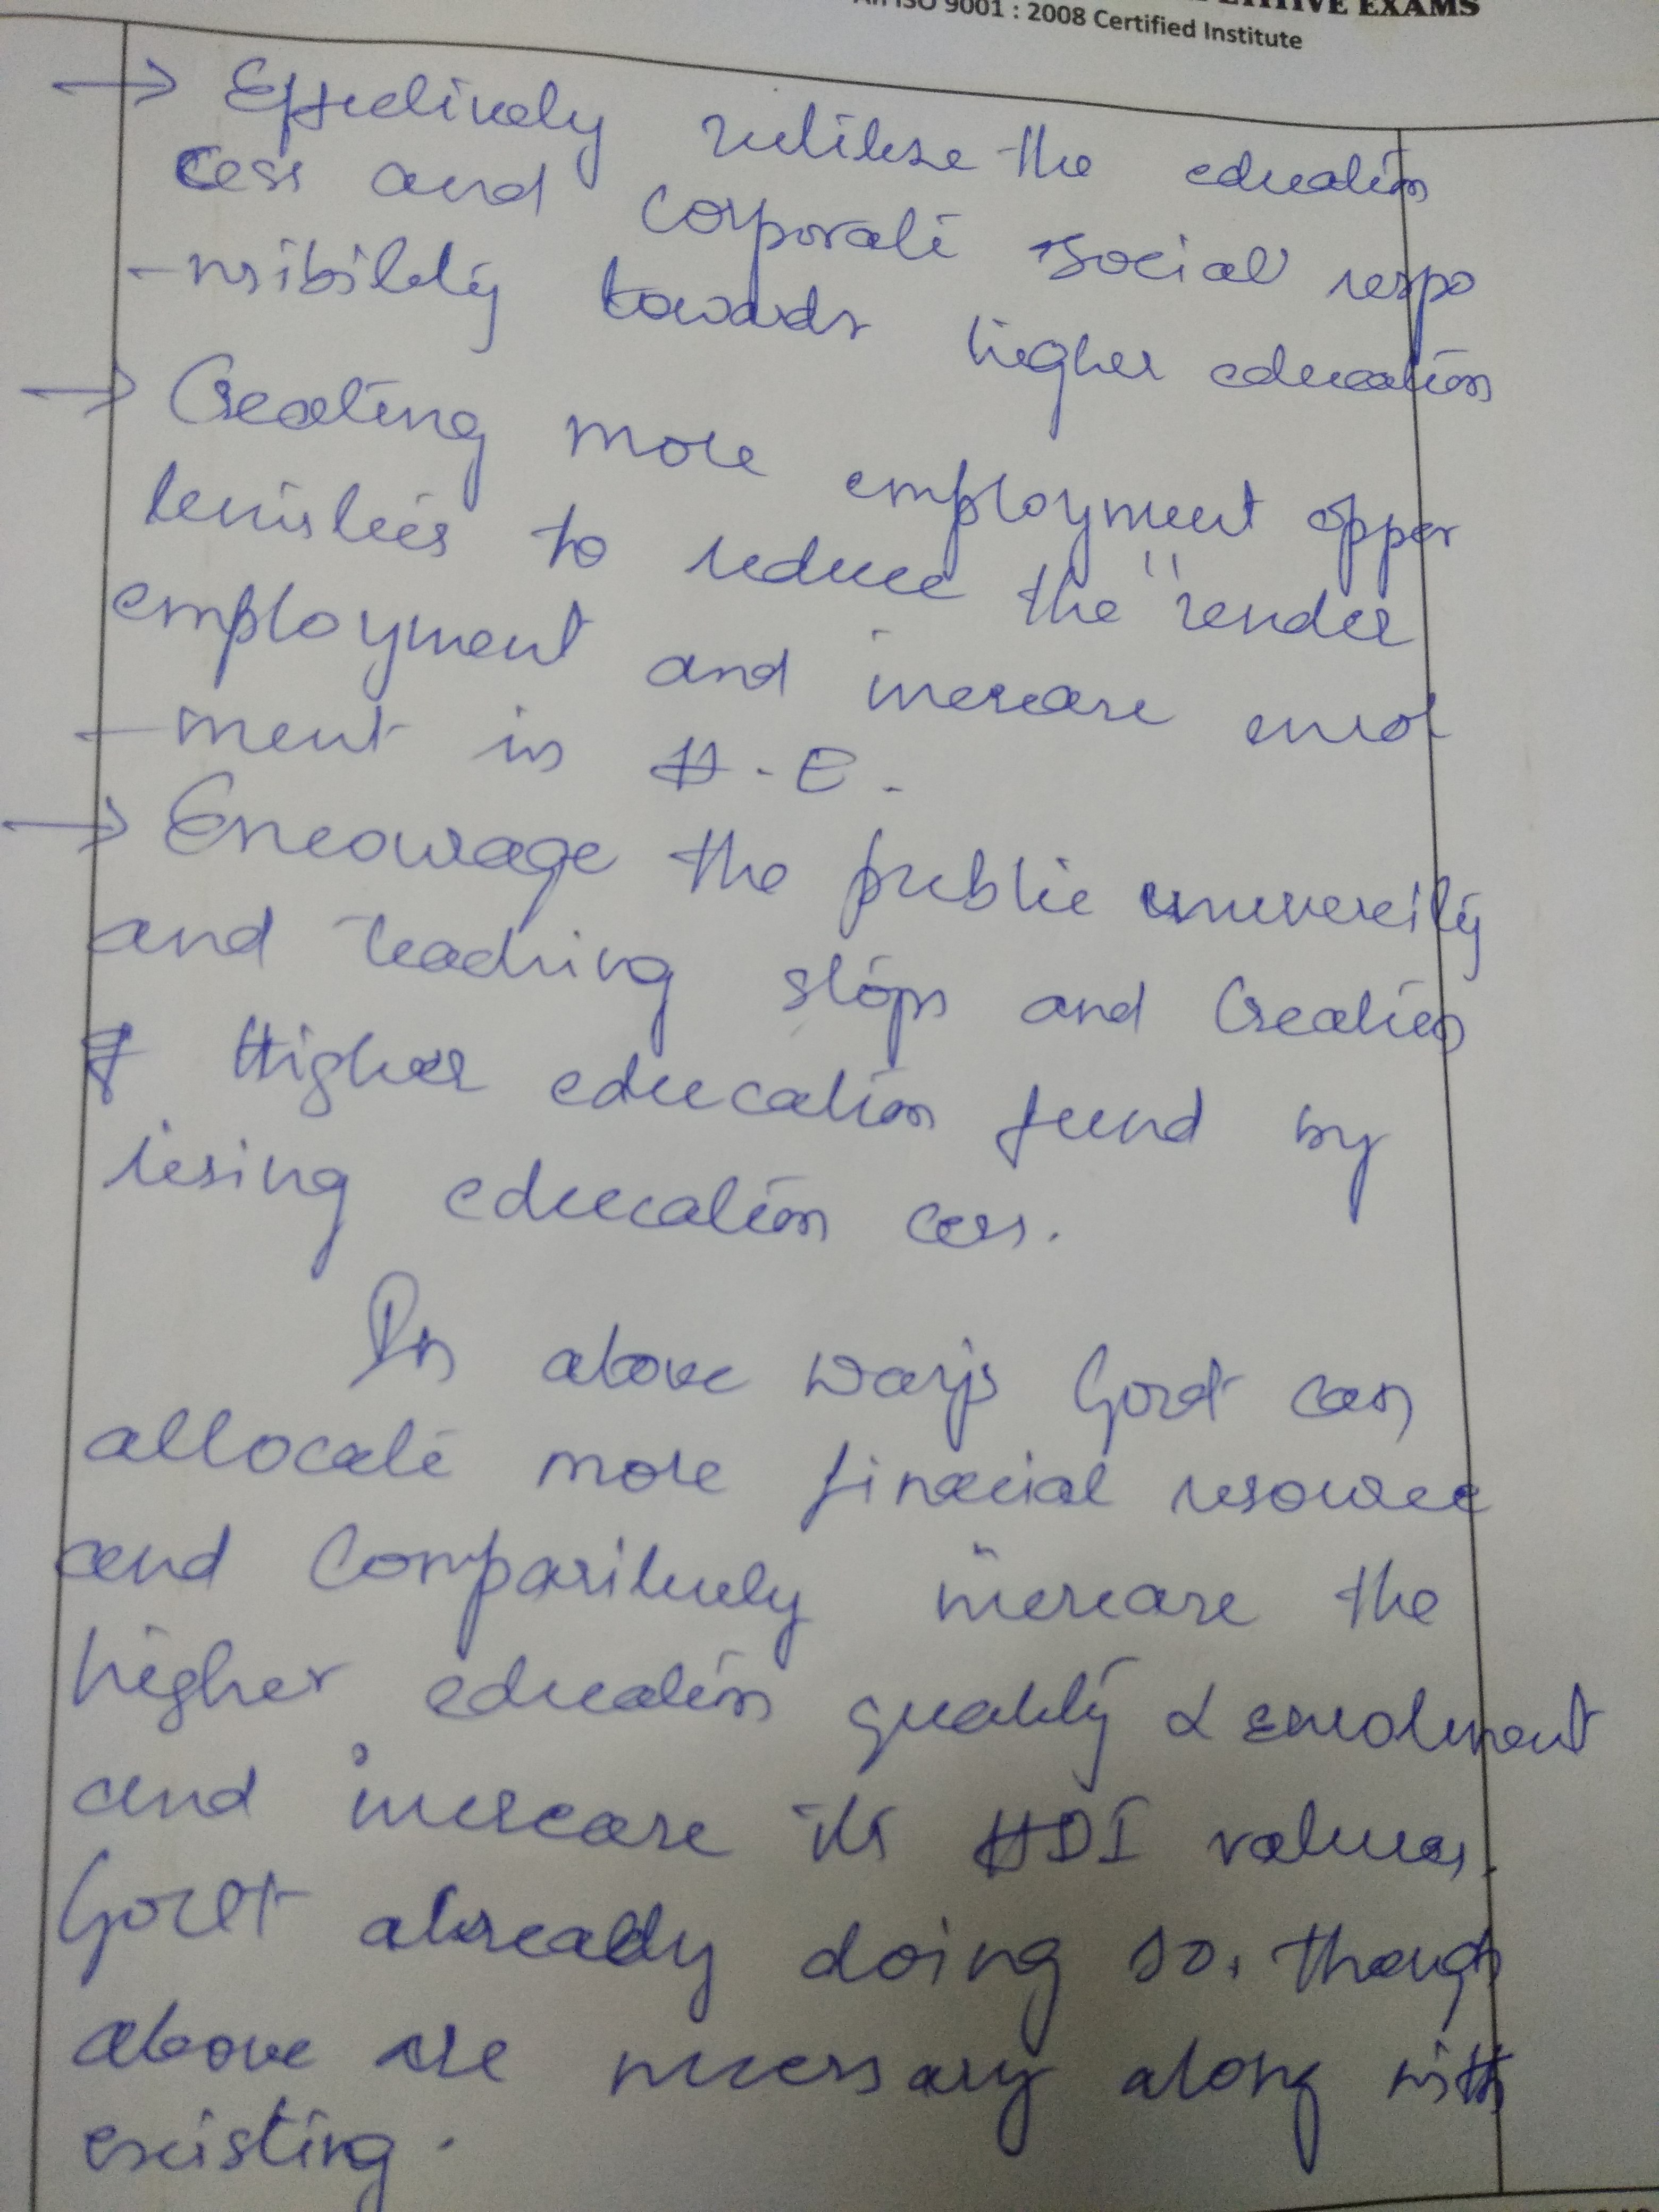 ITIVE EXAMS
An ISO 9001 : 2008 Certified Institute
→ Effectively utilise the education
cess and corporate social respo
-nsibility towards higher education
→ Creating more employment opper
tunisties to reduce the "under
employment and increase enrol
-ment in H.E.
→ Encourage the public university
and teaching and Creation
of Higher education fund by
using education cess.
In above ways Govt can
allocate more finacial resource
and Comparitively increase the
higher education quality & enrolment
and increase its HDI values.
Govt already doing so, though
above are necessary along with
existing.